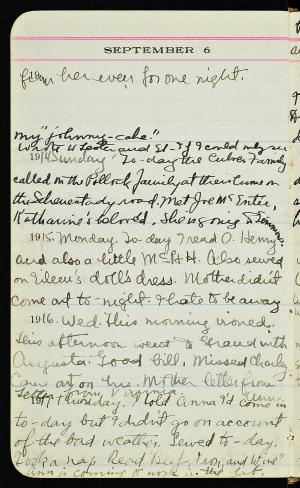 SEPTEMBER 6
from her even for one night.
my "johnny-cake."
Wrote to Lester and Ed - If I could only see
1914 Sunday. To-day the Culver Family
called on the Pollock family at their home on
the Schenectady road. Met Joe McEntee,
Katharine's beloved. She is going to
1915. Monday. To-day I read O. Henry
and also a little McP & H. Also sewed
on Eileen's doll's dress. Mother didn't
come out to-night. I hate to be away
1916. Wed. This morning ironed.
This afternoon went to Grand with
Augusta. Good bill. Missed Charley
Came out on bus. Mother letter from
Letter from Virginia.
1917 Thursday. Told Anna I'd come in
to-day but I didn't go on account
of the bad weather. Sewed to-day.
Took a nap. Read and Wine"
Ann is coming to work in the